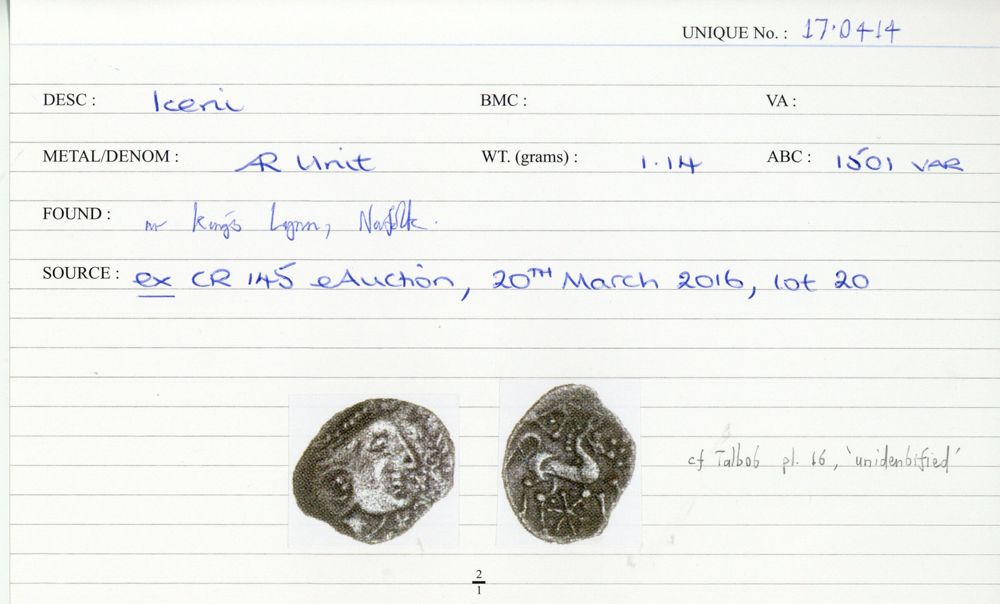 UNIQUE No. : 17.0414
DESC : Iceni BMC : VA :
METAL/DENOM : AR Unit WT. (grams) : 1.14 ABC : 1501 VAR
FOUND : nr King's Lynn, Norfolk.
SOURCE : ex CR 145 eAuction, 20TH March 2016, lot 20
cf Talbot pl. 16, 'unidentified'
2
1